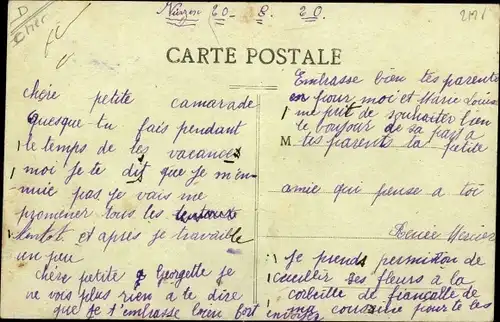 D
Cher
20 - 8 - 20
CARTE POSTALE
chère petite camarade
quesque tu fais pendant
le temps de tes vacances
moi je te dit que je m'en-
nuie pas je vais me
promener tous les
et après je travaille
un peu
chère petite Georgette je
ne vois plus rien a te dire
que je t'embrasse bien fort
Embrasse bien tes parents
pour moi et Marie Louise
me prit de souhaiter bien
le bonjour de sa part a
M tes parents ta petite
amie qui pense a toi
Renée
je prends permition de
cueillir des fleurs à la
corbeille de fiancaille de
cousine pour te les
envoyer